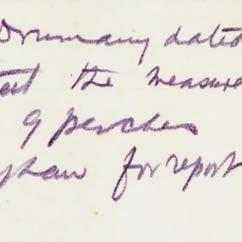 Drumany dated
the measure
9 perches
for report